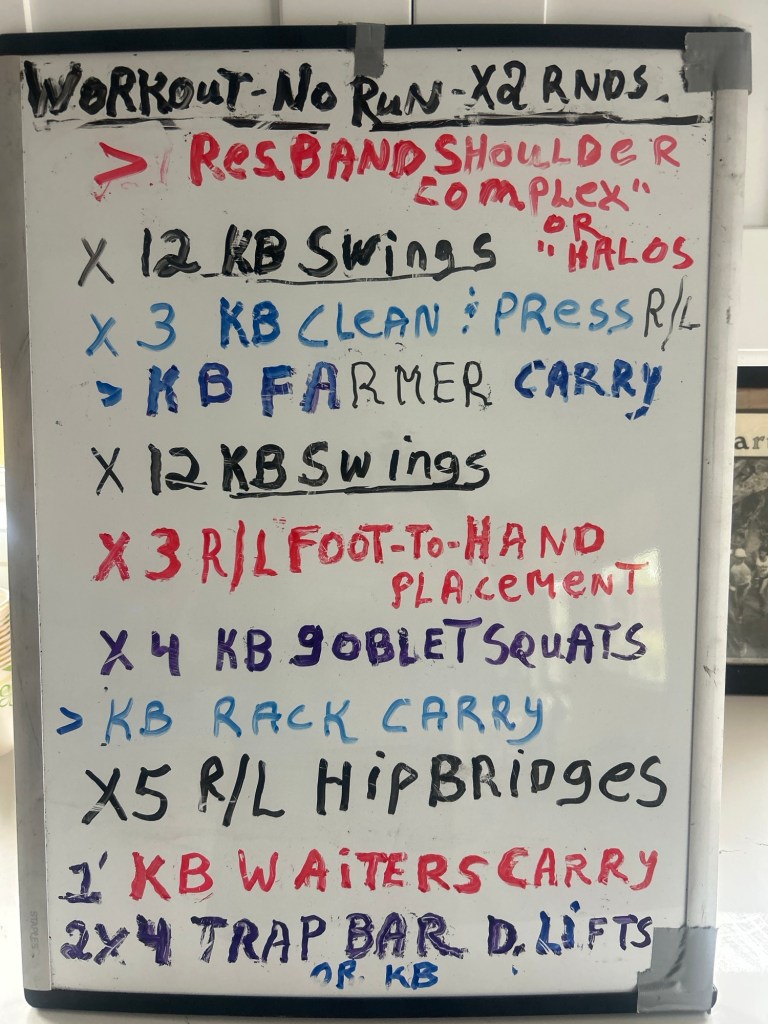 WORKOUT-NO RUN-X2 RNDS.
> Res. BAND SHOULDER
COMPLEX"
OR
X 12 KB Swings "HALOS
X 3 KB CLEAN & PRESS R/L
> KB FARMER CARRY
X 12 KB Swings
X 3 R/L FOOT-TO-HAND
PLACEMENT
X 4 KB GOBLET SQUATS
> KB RACK CARRY
X5 R/L HipBRidges
1' KB WAiTERS CARRY
2X4 TRAP BAR D. LiFTS
OR KB